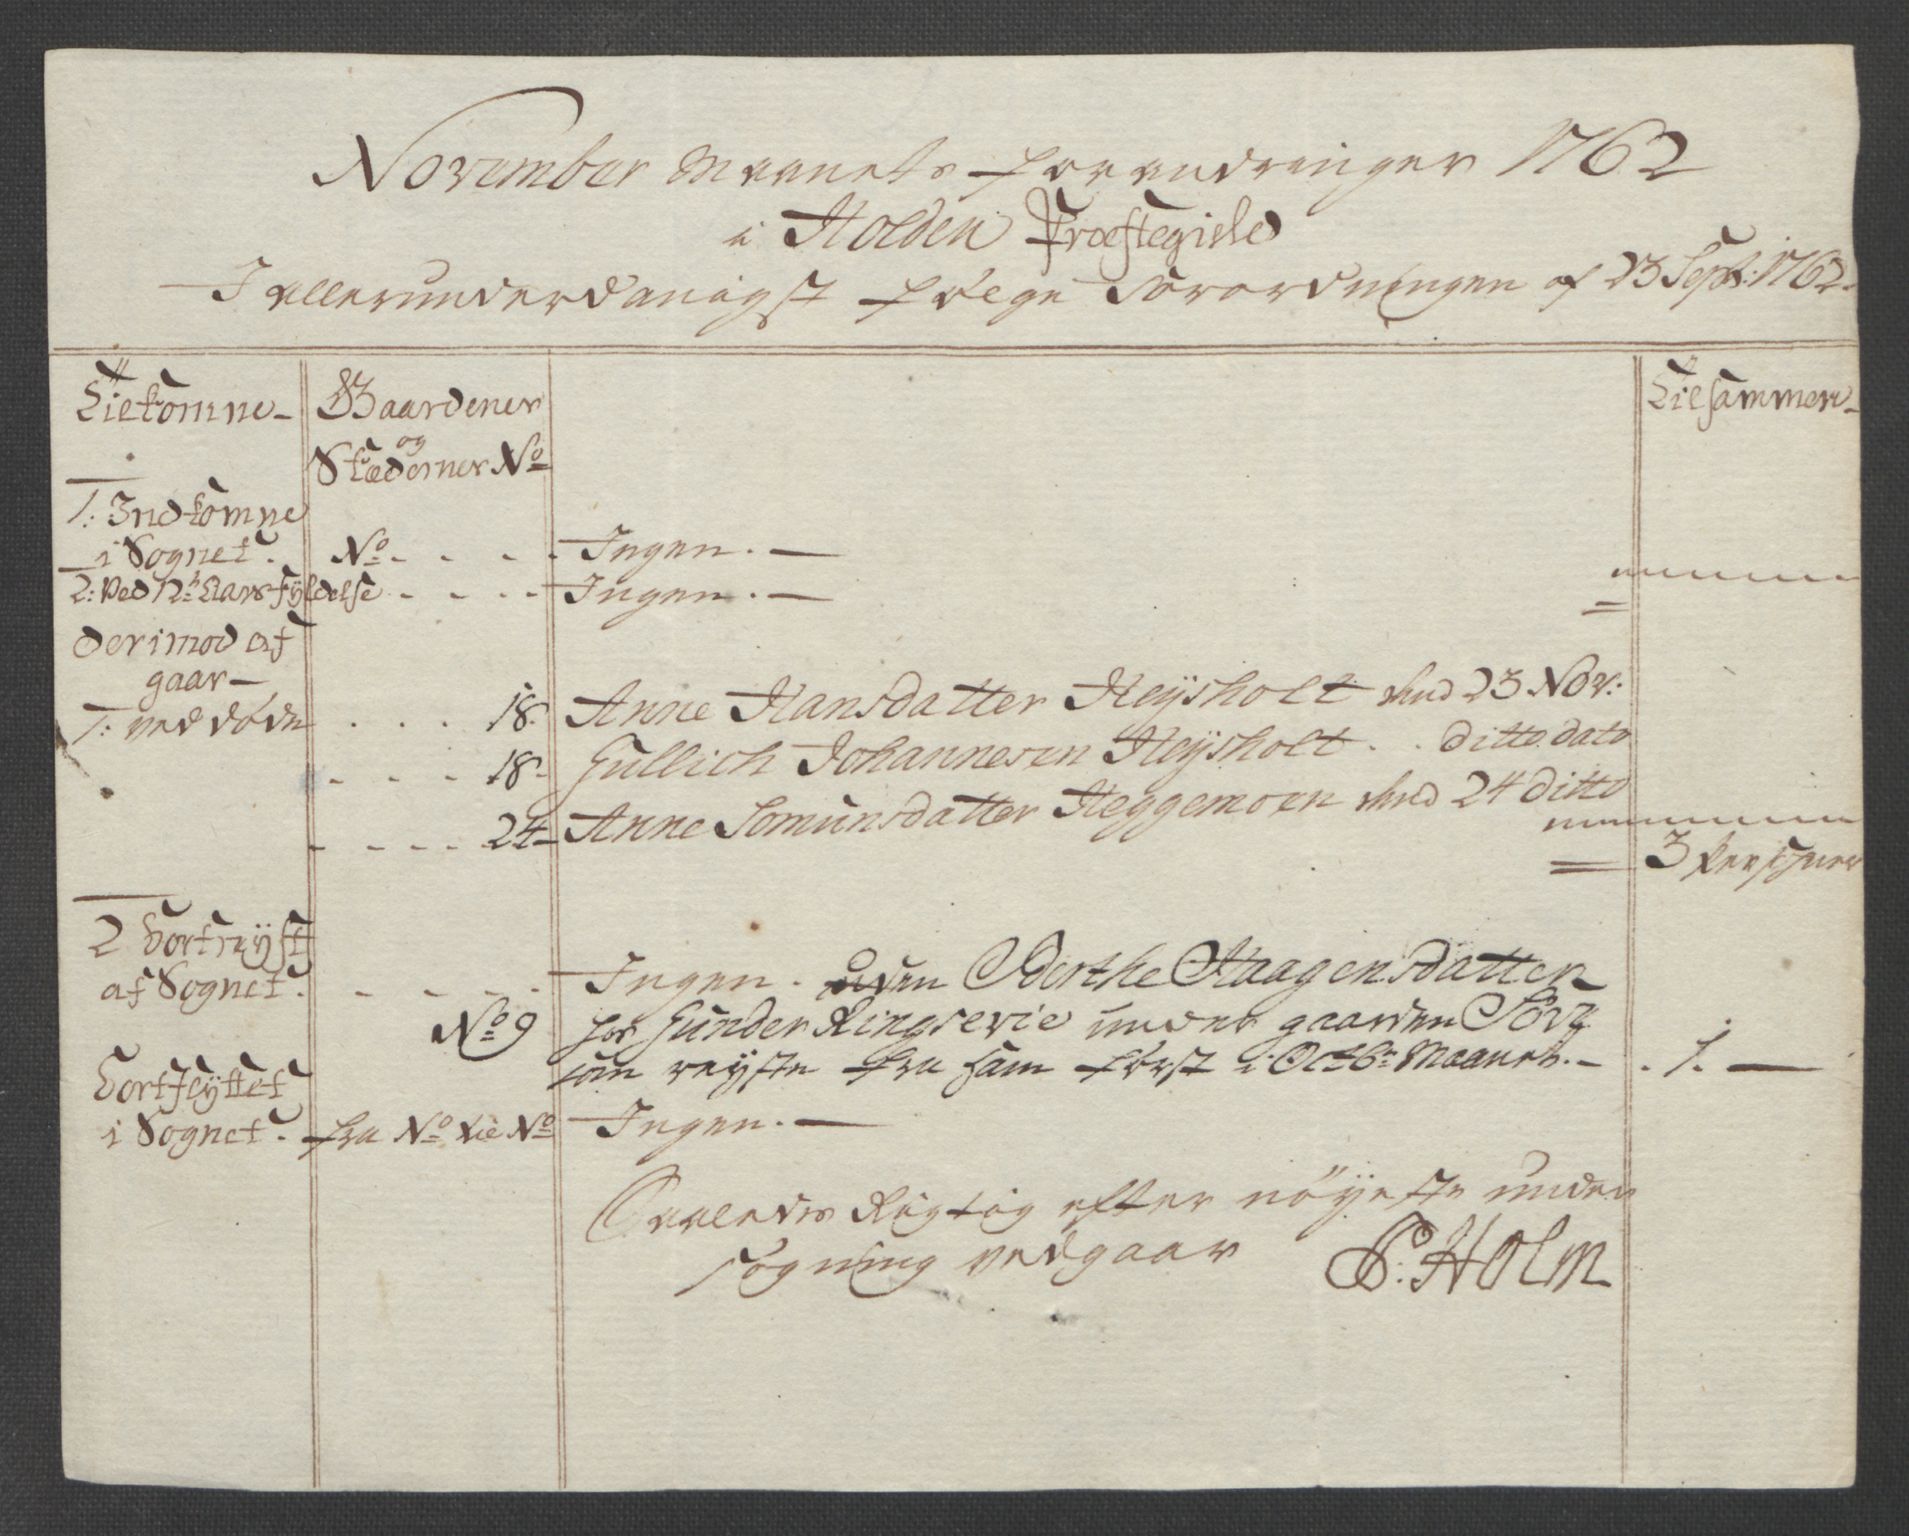 November Maanets forandringer 1762
i Holden Præstegield
I allerunderdanigst følge Forordningen af 23 Sept: 1762.
Tilkomne
Gaardener
og
Stædernes No
Tilsammen
1: Indkomne
i Sognet. No - - - - Ingen. —
2: Ved 12 Aars fyldelse - - - - Ingen. —
derimod af
gaar —
1: ved døde . . . 18. Anne Hansdatter Heÿsholt død 23 Nov:
- - - 18. Gullich Johannesen Heÿsholt . . ditto dato
- - - - 24 Anne Somunsdatter Heggemoen død 24 ditto
3 Persohner
2 bortreÿst
af Sognet. - - - - Ingen. uden Berthe Haagensdatter
No 9 hos Gunder Ringsevie under gaarden
som reyste fra ham først i Octbr Maaned. - . 1. —
bortflÿttet
i Sognet. fra No til No Ingen. —
Saaledes Rigtig efter nöÿeste under
søgning vedgaar P: Holm